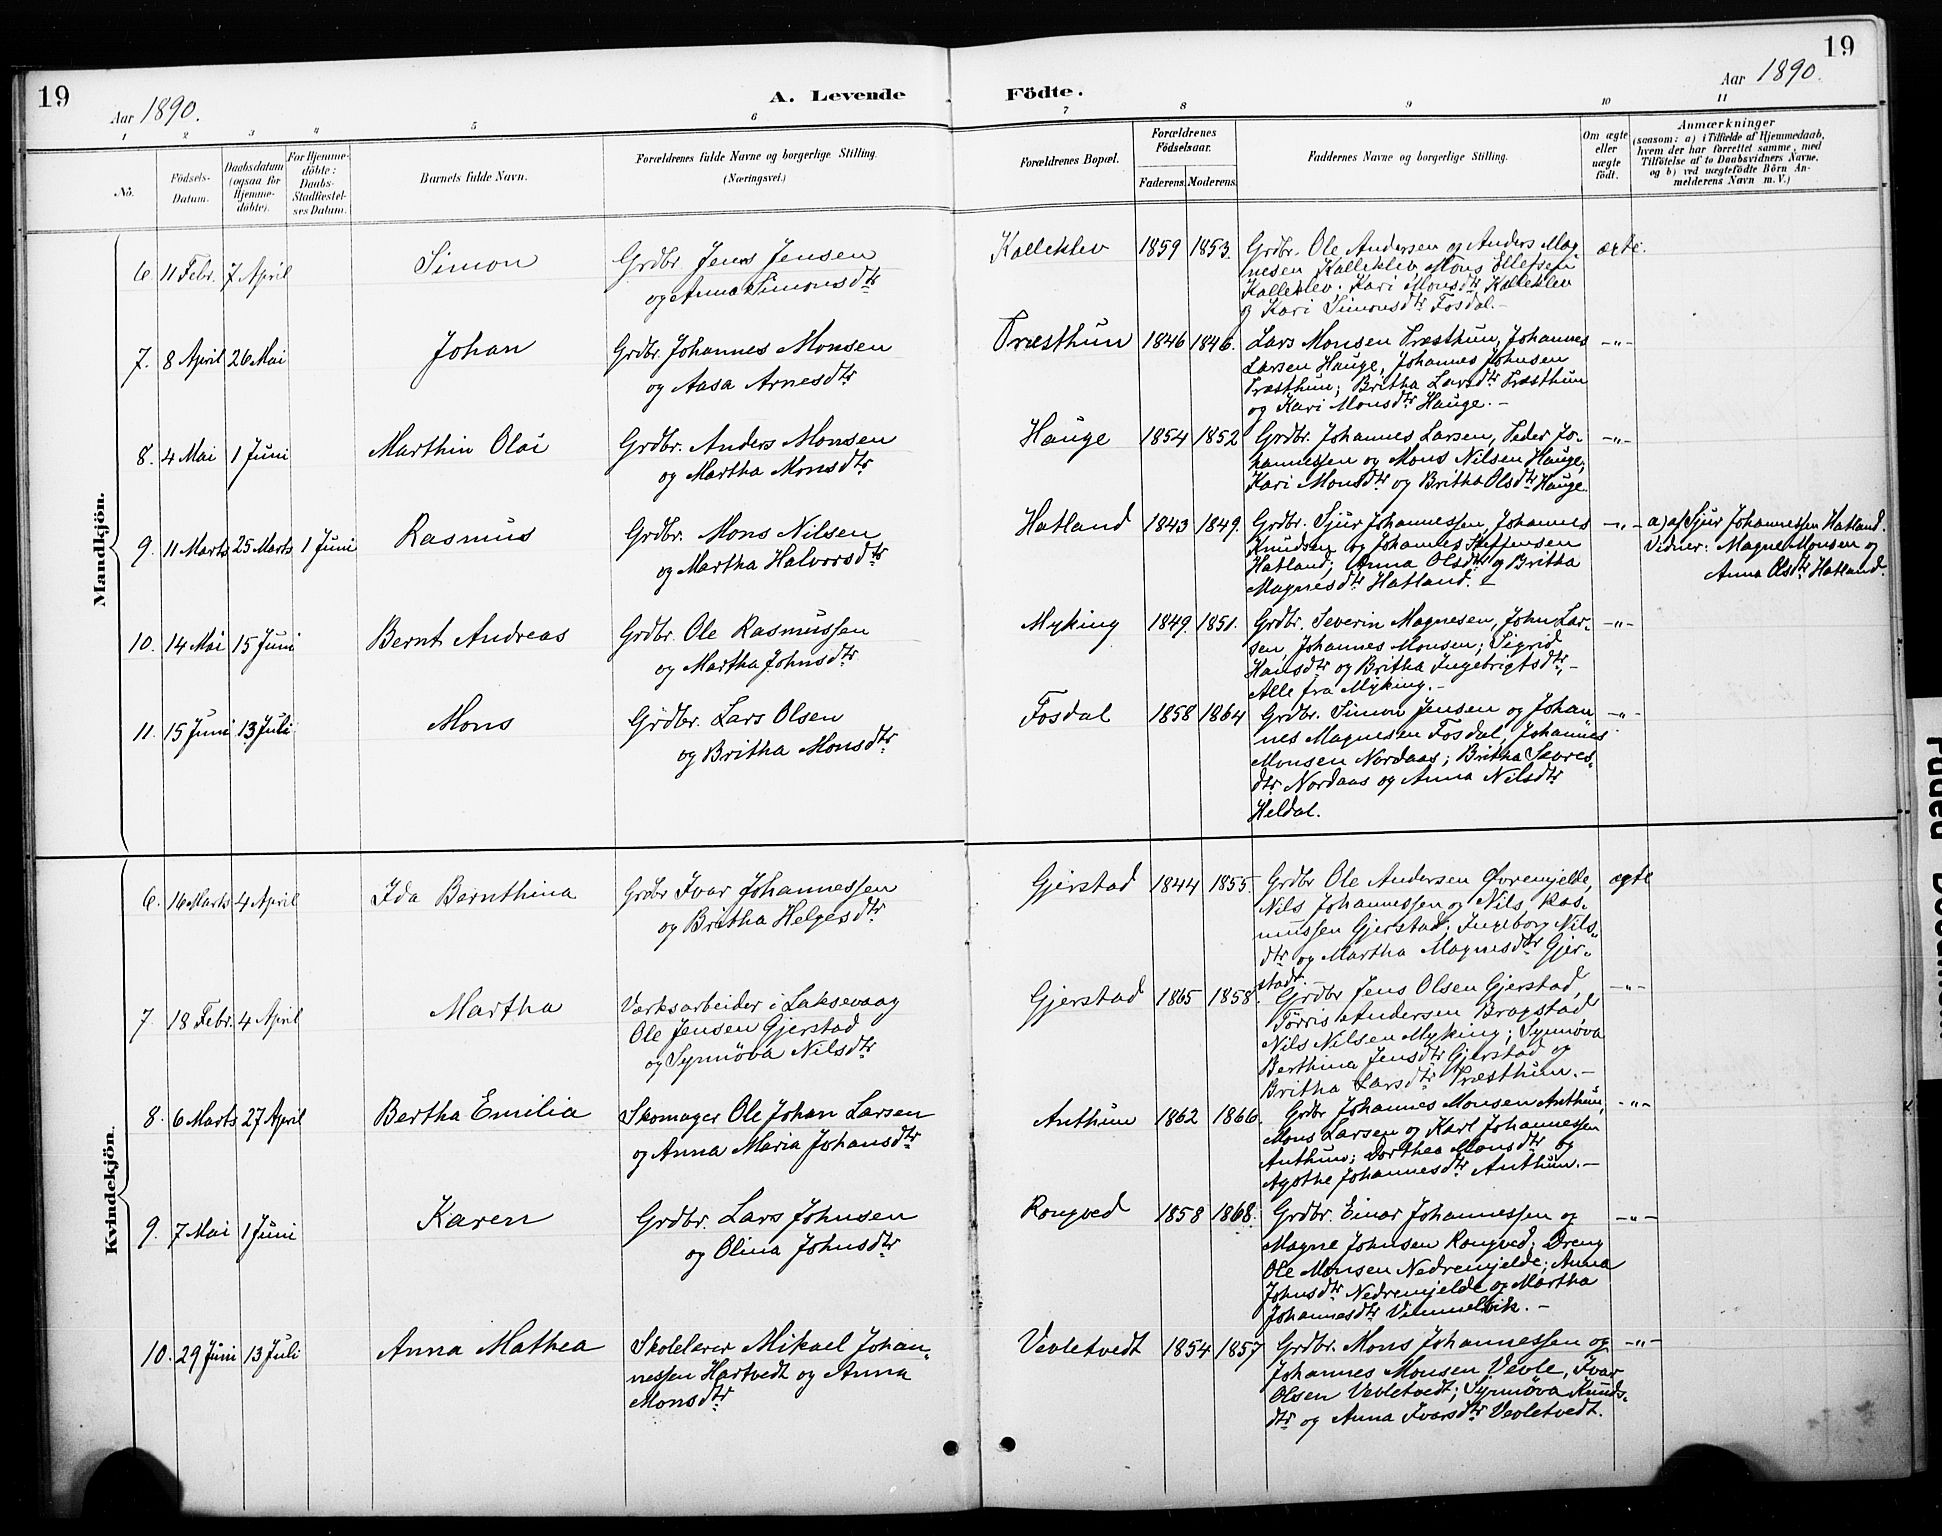 19
Aar 1890.
A. Levende Födte.
Aar 1890.
19
1 2 3 4 5 6 7 8 9 10 11
No.
Födsels-Datum.
Daabsdatum (ogsaa for Hjemme-döbte).
For Hjemme-döbte: Daabs-Stadfæstel-ses Datum.
Barnets fulde Navn.
Forældrenes fulde Navne og borgerlige Stilling.
(Næringsvei.)
Forældrenes Bopæl.
Forældrenes Födselsaar.
Faderens. Moderens.
Faddernes Navne og borgerlige Stilling.
Om ægte eller uægte födt.
Anmærkninger
(saasom: a) i Tilfælde af Hjemmedaab, hvem der har forrettet samme, med Tilföielse af to Daabsvidners Navne, og b) ved uægtefödte Börn An-melderens Navn m. V.)
Mandkjön.
6. 11 Febr. 7 April Simon
Grdbr. Jens Jensen
og Anna Simonsdtr
Kalleklev 1859 1853.
Grdbr. Ole Andersen og Anders Mag-
nesen Kalleklev, Mons Ellefsen
Kalleklev. Kari Monsdtr Kalleklev
og Kari Simonsdtr Fosdal.-
ægte.
7. 8 April 26 Mai Johan
Grdbr. Johannes Monsen
og Aasa Arnesdtr
Træsthun 1846 1846.
Lars Monsen Træsthun, Johannes
Larsen Hauge, Johannes Johnsen
Træsthun; Britha Larsdtr Træsthun
og Kari Monsdtr Hauge.-
-"-
8. 4 Mai 1 Juni Marthin Olai
Grdbr. Anders Monsen
og Martha Monsdtr
Hauge 1854 1852
Grdbr. Johannes Larsen, Peder Jo-
hannessen og Mons Nilsen Hauge,
Kari Monsdtr og Britha Olsdtr Hauge
-"-
9. 11 Marts 25 Marts 1 Juni Rasmus
Grdbr. Mons Nilsen
og Martha Halvorsdtr
Hatland 1843 1849.
Grdbr. Sjur Johannessen, Johannes
Knudsen og Johannes Steffensen
Hatland; Anna Olsdtr og Britha
Magnesdtr Hatland.-
-"-
a) af Sjur Johannessen Hatland.
Vidner: Magne Monsen og
Anna Olsdtr Hatland.
10. 14 Mai 15 Juni Bernt Andreas
Grdbr. Ole Rasmussen
og Martha Johnsdtr
Myking 1849. 1851.
Grdbr. Severin Magnesen, John Lar-
sen, Johannes Monsen; Sigrid
Hansdtr og Britha Ingebrigtsdtr,-
Alle fra Myking.-
-"-
11. 15 Juni 13 Juli Mons
Grdbr. Lars Olsen
og Britha Monsdtr
Fosdal 1858 1864
Grdbr. Simon Jensen og Johan
nes Magnesen Fosdal, Johannes
Monsen Nordaas; Britha Sjures-
dtr Nordaas og Anna Nilsdtr
Heldal.
-"-
Kvindekjön.
6. 16 Marts 4 April Ida Bernthina
Grdbr Ivar Johannessen
og Britha Helgesdtr
Gjerstad 1844 1855.
Grdbr Ole Andersen Øvremjelde,
Nils Johannessen og Nils Ras-
mussen Gjerstad; Ingeborg Nils-
dtr og Martha Magnesdtr Gjer-
stad.
ægte
7. 18 Febr. 4 April Martha
Værksarbeider i Laksevaag
Ole Jensen Gjerstad
og Synnöva Nilsdtr
Gjerstad 1865 1858.
Grdbr Jens Olsen Gjerstad,
Törris Andersen Bragstad
Nils Nilsen Myking; Synnöva
Berthina Jensdtr Gjerstad og
Britha Larsdtr Træsthun.-
-"-
8. 6 Marts 27 April Bertha Emilia
Skomager Ole Johan Larsen
og Anna Maria Johansdtr
Anthun 1862 1866.
Grdbr Johannes Monsen Anthun,
Mons Larsen og Karl Johannessen
Anthun; Dorthea Monsdtr og
Agathe Johannesdtr Anthun.-
-"-
9. 7 Mai 1 Juni Karen
Grdbr. Lars Johnsen
og Olina Johnsdtr
Rongved 1858 1868.
Grdbr. Einar Johannessen og
Magne Johnsen Rongved; Dreng
Ole Monsen Nedremjelde; Anna
Johnsdtr Nedremjelde og Martha
Johannesdtr Vimmelvik.-
-"-
10. 29 Juni 13 Juli Anna Mathea
Skolelærer Mikael Johan-
nessen Hartvedt og Anna
Monsdtr
Vevletvedt 1854 1857
Grdbr. Mons Johannessen og
Johannes Monsen Vevle, Ivar
Olsen Vevletvedt; Synnöva Knuds-
dtr og Anna Ivarsdtr Vevletvedt.
-"-